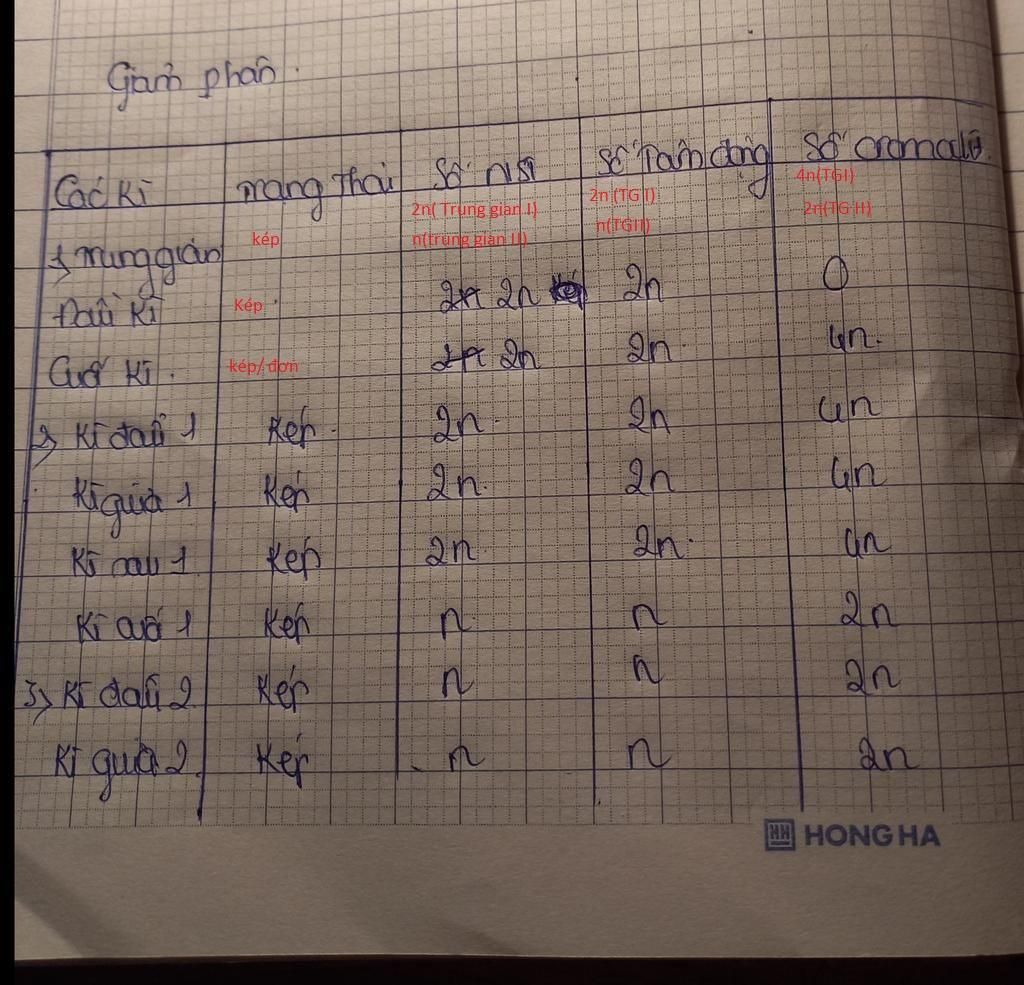 Giảm phân.
Các kì mạng thái Số NST Số Tâm động Số cromatit.
2n( Trung gian I) 2n (TG I) 4n(TGI)
1, Trung gian kép n(trung gian II) n(TGII) 2n(TG II)
Đầu kì Kép 2n 2n 0
Cuối kì. kép/ đơn 2n 2n 4n.
2, Kì đầu 1 Kép 2n 2n 4n
Kì giữa 1 Kép 2n 2n 4n
Kì sau 1 Kép 2n 2n 4n
Kì cuối 1 Kép n n 2n
3, Kì đầu 2 Kép n n 2n
Kì giữa 2 Kép n n 2n
HONG HA